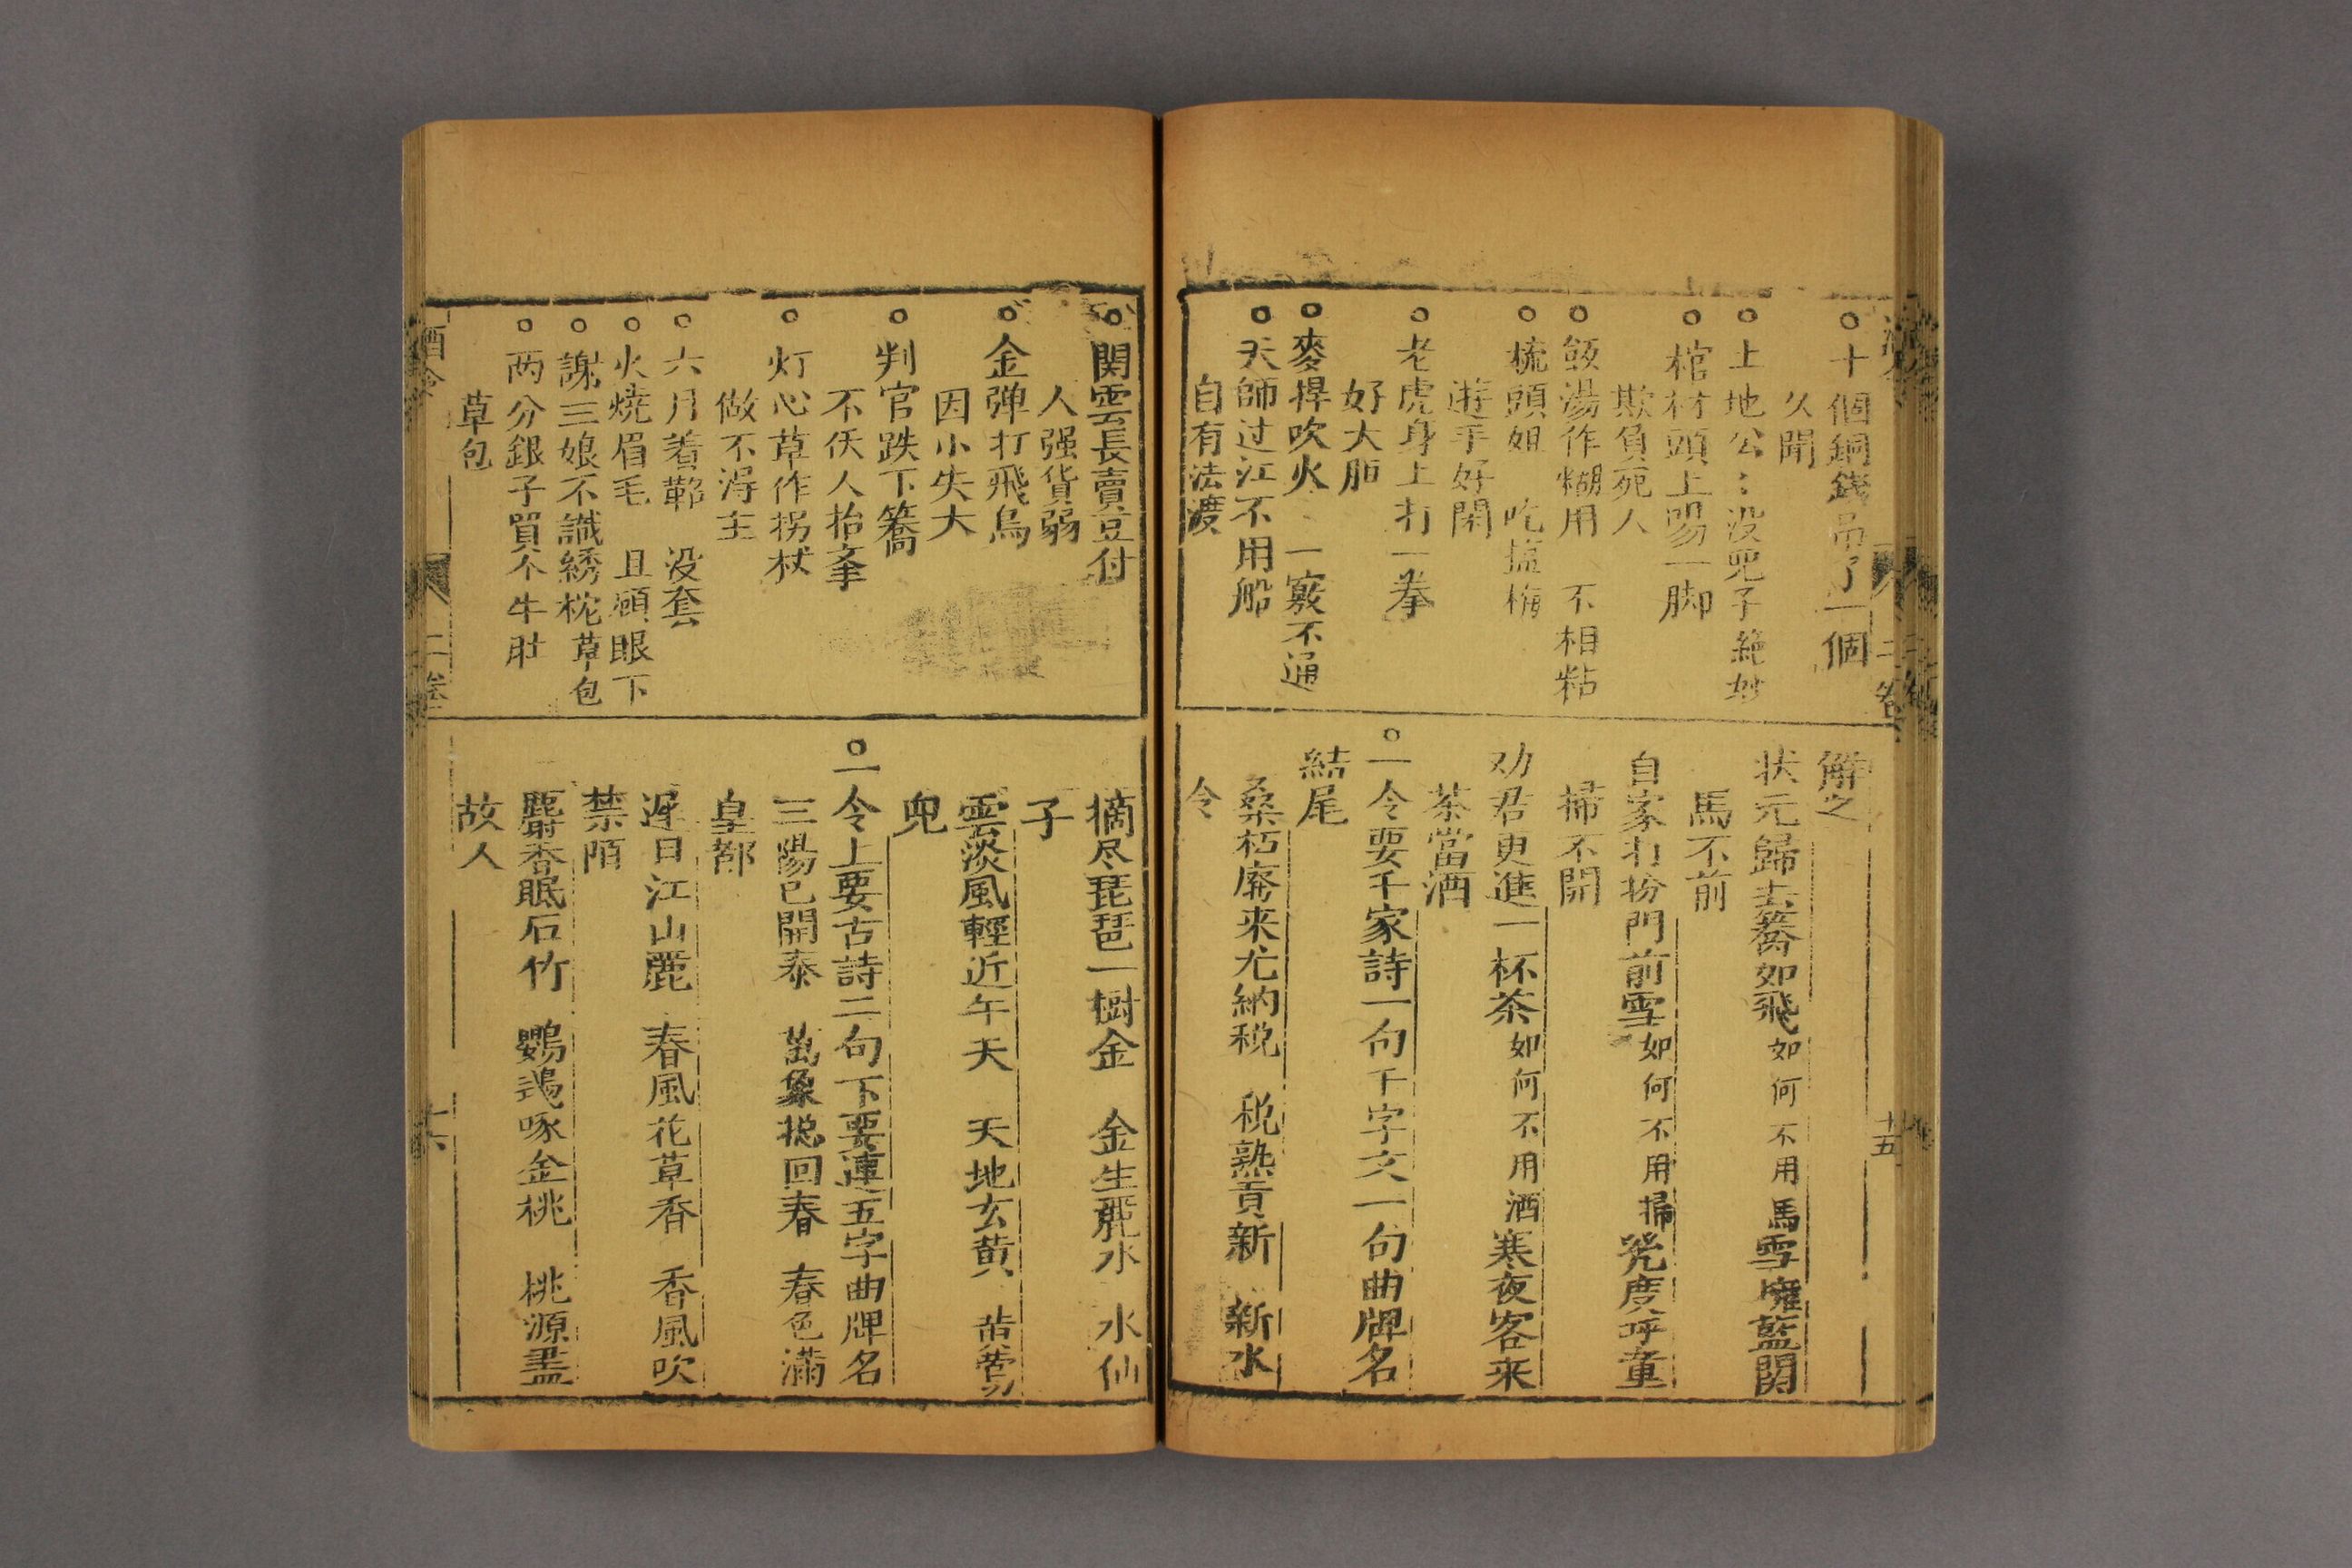 十個銅錢吊了一個
久聞
土地公〻没兜子絶妙
棺材頭上踢一脚
欺負死人
飯湯作糊用 不相粘
梳頭姐 吃搵梅
遊手好閑
老虎身上打一拳
好大胆
麥捍吹火 一竅不通
天師过江不用船
自有法渡
解之
状元歸去蕎如飛如何不用馬雪擁藍関
馬不前
自家打扮門前雪如何不用掃㡬度呼童
掃不開
劝君更進一杯茶如何不用酒寒夜客来
茶當酒
一令要千家詩一句千字文一句曲牌名
結尾
桑朽廢来尤納税 税熟貢新 新水
令
二卷
十五
関雲長賣豆付
人强貨弱
金弹打飛鳥
因小失大
判官跌下簥
不伏人抬峯
灯心草作拐杖
做不淂主
六月着鞋 没套
火燒眉毛 且顧眼下
謝三娘不識綉枕草包
两分銀子買个牛肚
草包
摘尽琵琶一樹金 金生麗水 水仙
子
雲淡風輕近午天 天地玄黄 黄鶯
兒
一令上要古詩二句下要連五字曲牌名
三陽已開泰 萬象摠回春 春色滿
皇都
遲日江山麗 春風花草香 香風吹
禁陌
麝香眠石竹 鸚鵡啄金桃 桃源盡
故人
酒令
二卷
十六